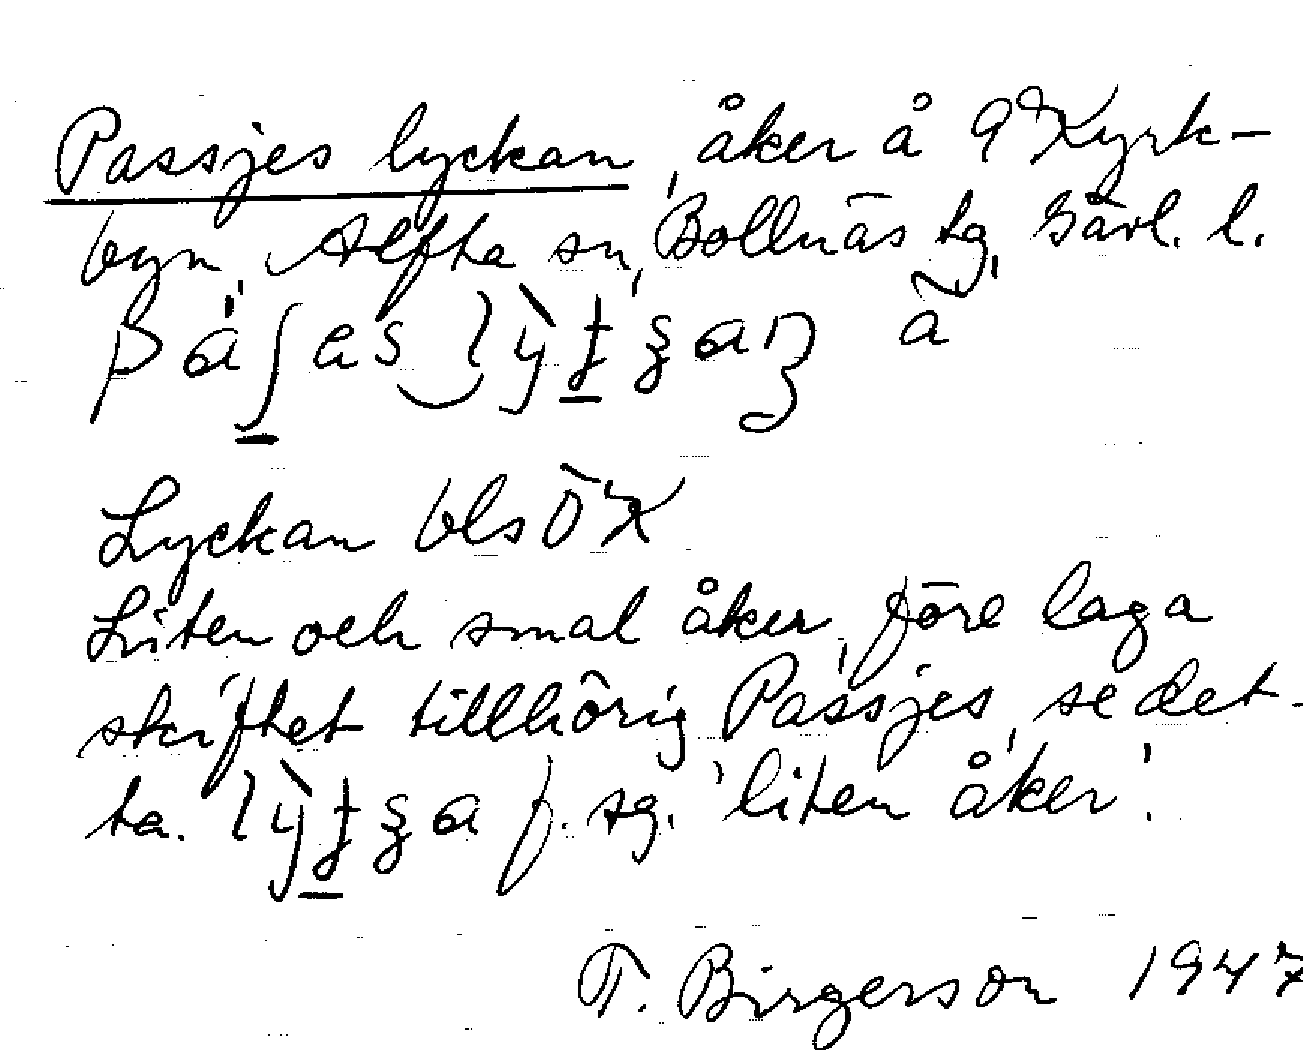 Passjes lyckan, åker å 9ᵃ Kyrk-
byn, Alfta sn, Bollnäs tg, Gävl. l.
Lyckan bls
Liten och smal åker, före laga
skiftet tillhörig Passjes, se det-
ta. f. sg. 'liten åker'.
T. Birgerson 1947